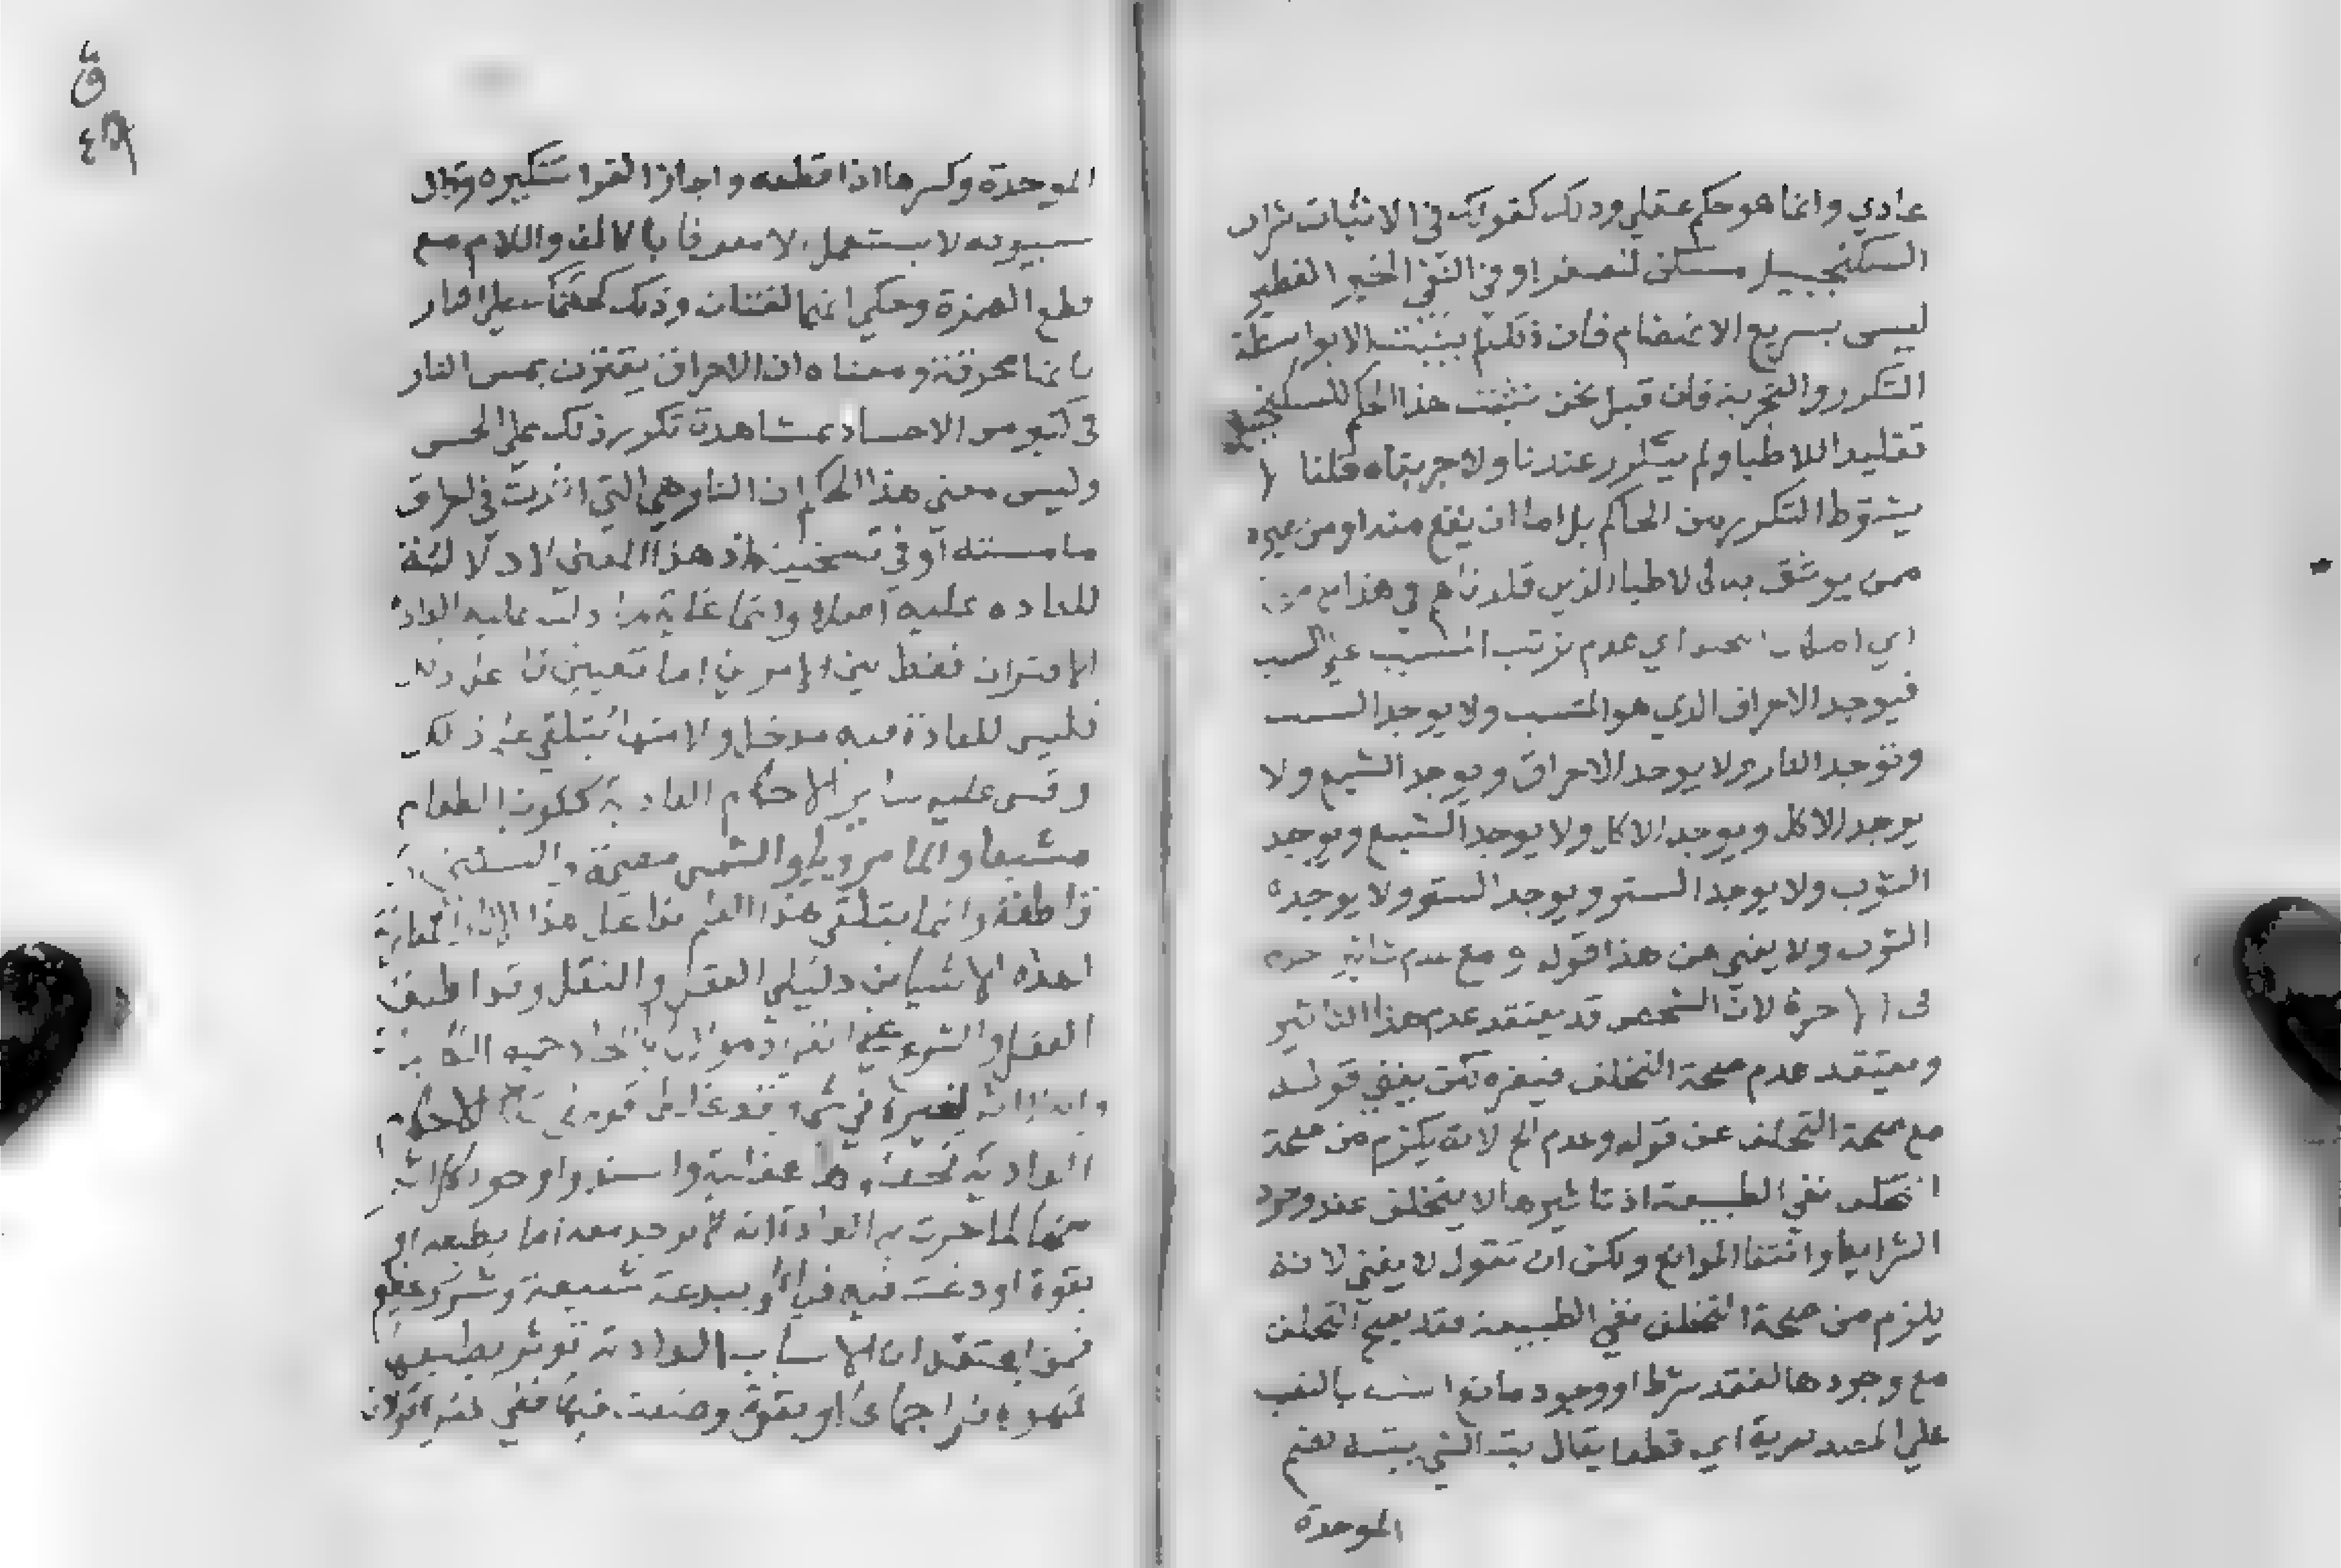 عادي وانما هو حكم عقلي وذلك كقولك في الاثبات شراب
السكنجبيل مسكن للصفرا وفي النفي الخبز الفطير
ليس بسريع الانهضام فان ذلك لم يثبت الا بواسطة
التكرر والتجربة فان قيل نحن نثبت هذا الحكم للسكنجبيل
تقليدا للاطبا ولم يتكرر عندنا ولا جربناه قلنا لا
يشترط التكرر من الحاكم بل اما ان يقع منه او من غيره
ممن يوثق به كالاطبا الذين قلدناهم في هذا مع
اي عدم ترتب المسبب على السبب
فيوجد الاحراق الذي هو المسبب ولا يوجد السبب
وتوجد النار ولا يوجد الاحراق ويوجد الشبع ولا
يوجد الاكل ويوجد الاكل ولا يوجد الشبع ويوجد
الثوب ولا يوجد الستر ويوجد الستر ولا يوجد
الثوب ولا يغني عن هذا قوله ومع عدم تاثير
لان الشخص قد يعتقد عدم هذا التاثير
ويعتقد عدم صحة التخلف فيضره لكن يغني قوله
مع صحة التخلف عن قوله وعدم الخ لانه يلزم من صحة
التخلف نفي الطبيعة اذ تاثيرها لا يتخلف عند وجود
الشرايط وانتفا الموانع ولك ان تقول لا يغني لانه
يلزم من صحة التخلف نفي الطبيعة فقد يصح التخلف
مع وجودها لفقد شرط او وجود مانع البتة بالنصب
على المصدرية اي قطعا يقال بت الشي يبته بضم
الموحدة
الموحدة وكسرها اذا قطعه واجاز الفرا تنكيره وقال
سيبويه لا يستعمل الا معرفا بالالف واللام مع
قطع الهمزة وحكي انهما لغتان وذلك كحكمنا على النار
بانها محرقة ومعناه ان الاحراق يقترن بمس النار
في كثير من الاجساد بمشاهدة تكرر ذلك على الحس
وليس معنى هذا الحكم ان النار هي التي اثرت في احراق
ما مسته او في تسخينه اذ هذا المعنى لا دلالة
للعادة عليه اصلا وانما غاية ما دلت عليه العادة
الاقتران فقط بين الامرين اما تعيين فاعل ذلك
فليس للعادة فيه مدخل ولا منها يتلقى علم ذلك
وقس عليه ساير الاحكام العادية ككون الطعام
مشبعا والما مرويا والشمس مضيئة والسكين
قاطعة وانما يتلقى هذا العلم بفاعل هذه الاثار المقارنة
لهذه الاشيا من دليلي العقل والنقل وقد اطبق
العقل والشرع على انفراد مولانا باختراع جميع الكاينات
لغيره في شي وقد غلط قوم في تلك الاحكام
العادية فجعلوها عقلية واسندوا وجود كل اثر
منها لما جرت به العادة انه يوجد معه اما بطبعه او
بقوة اودعت فيه فباؤا ببدعة شنيعة وشرك عظيم
فمن اعتقد ان الاسباب العادية توثر بطبعها
فهو كافر اجماعا او بقوة وضعت فيها ففي كفره قولان